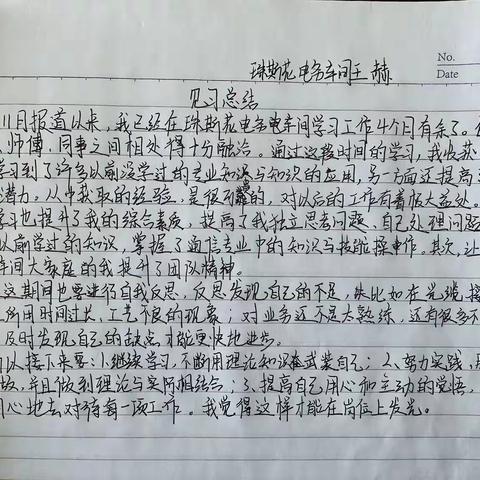 No.
Date
珠斯花电务车间王赫
见习总结
11月报道以来，我已经在珠斯花电务车间学习工作4个月有余了。
师傅、同事之间相处得十分融洽。通过这段时间的学习，我收获
学习到了许多以前没学过的专业知识与知识的应用，另一方面还提高
潜力。从中获取的经验，是很宝贵的，对以后的工作有着极大益处。
学习也提升了我的综合素质，提高了我独立思考问题、自己处理问题
以前学过的知识，掌握了通信专业中的知识与技能操作。其次，让
车间大家庭的我提升了团队精神。
这期间也要进行自我反思，反思发现自己的不足，比如在光缆接
所用时间过长，工艺不良的现象；对业务还不是太熟练，还有很多不
及时发现自己的缺点才能更快地进步。
以接下来要：1、继续学习，不断用理论知识武装自己；2、努力实践，
故，并且做到理论与实际相结合；3、提高自己用心和主动的觉悟，
用心地去对待每一项工作。我觉得这样才能在岗位上发光。